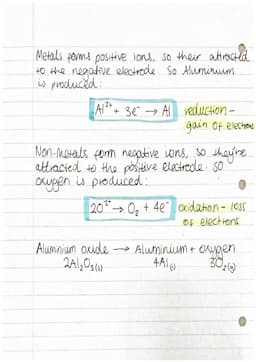 Metals forms positive ions, so their attracted
to the negative electrode. So Aluminium
is produced:
Al³⁺ + 3e⁻ → Al reduction -
gain of electrons
Non-Metals form negative ions, so they're
attracted to the positive electrode. So
oxygen is produced:
2O²⁻ → O₂ + 4e⁻ oxidation - loss
of electrons
Aluminium oxide → Aluminium + oxygen
2Al₂O₃(l) 4Al(l) 3O₂(g)